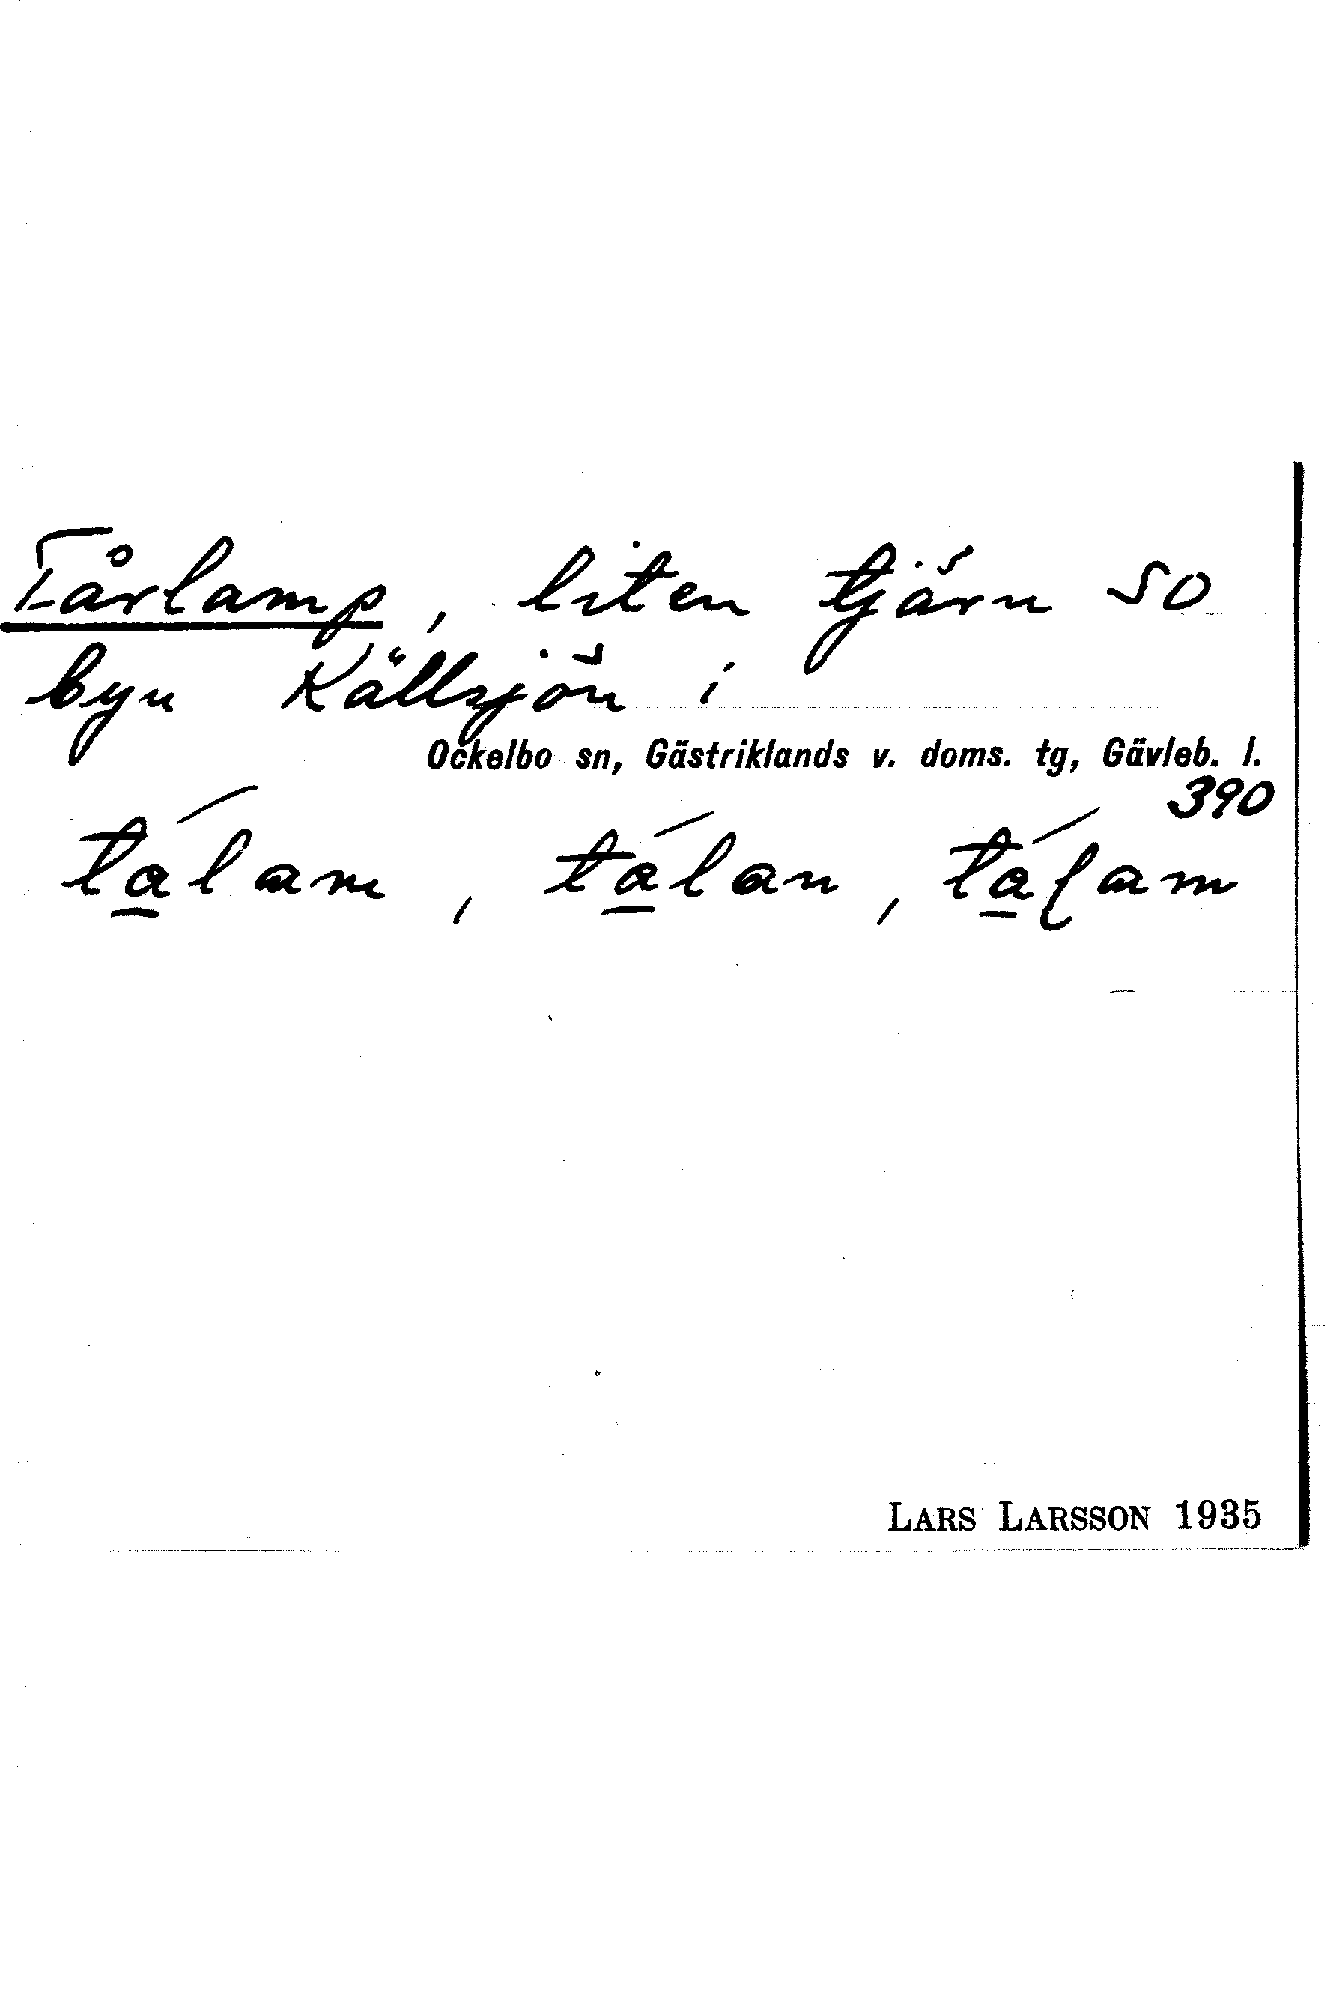 Tårlamp, liten tjärn SO
byn Källsjön i
Ockelbo sn, Gästriklands v. doms. tg, Gävleb. l.
390
tá̲lam, tá̲lan, tá̲ɭam
LARS LARSSON 1935